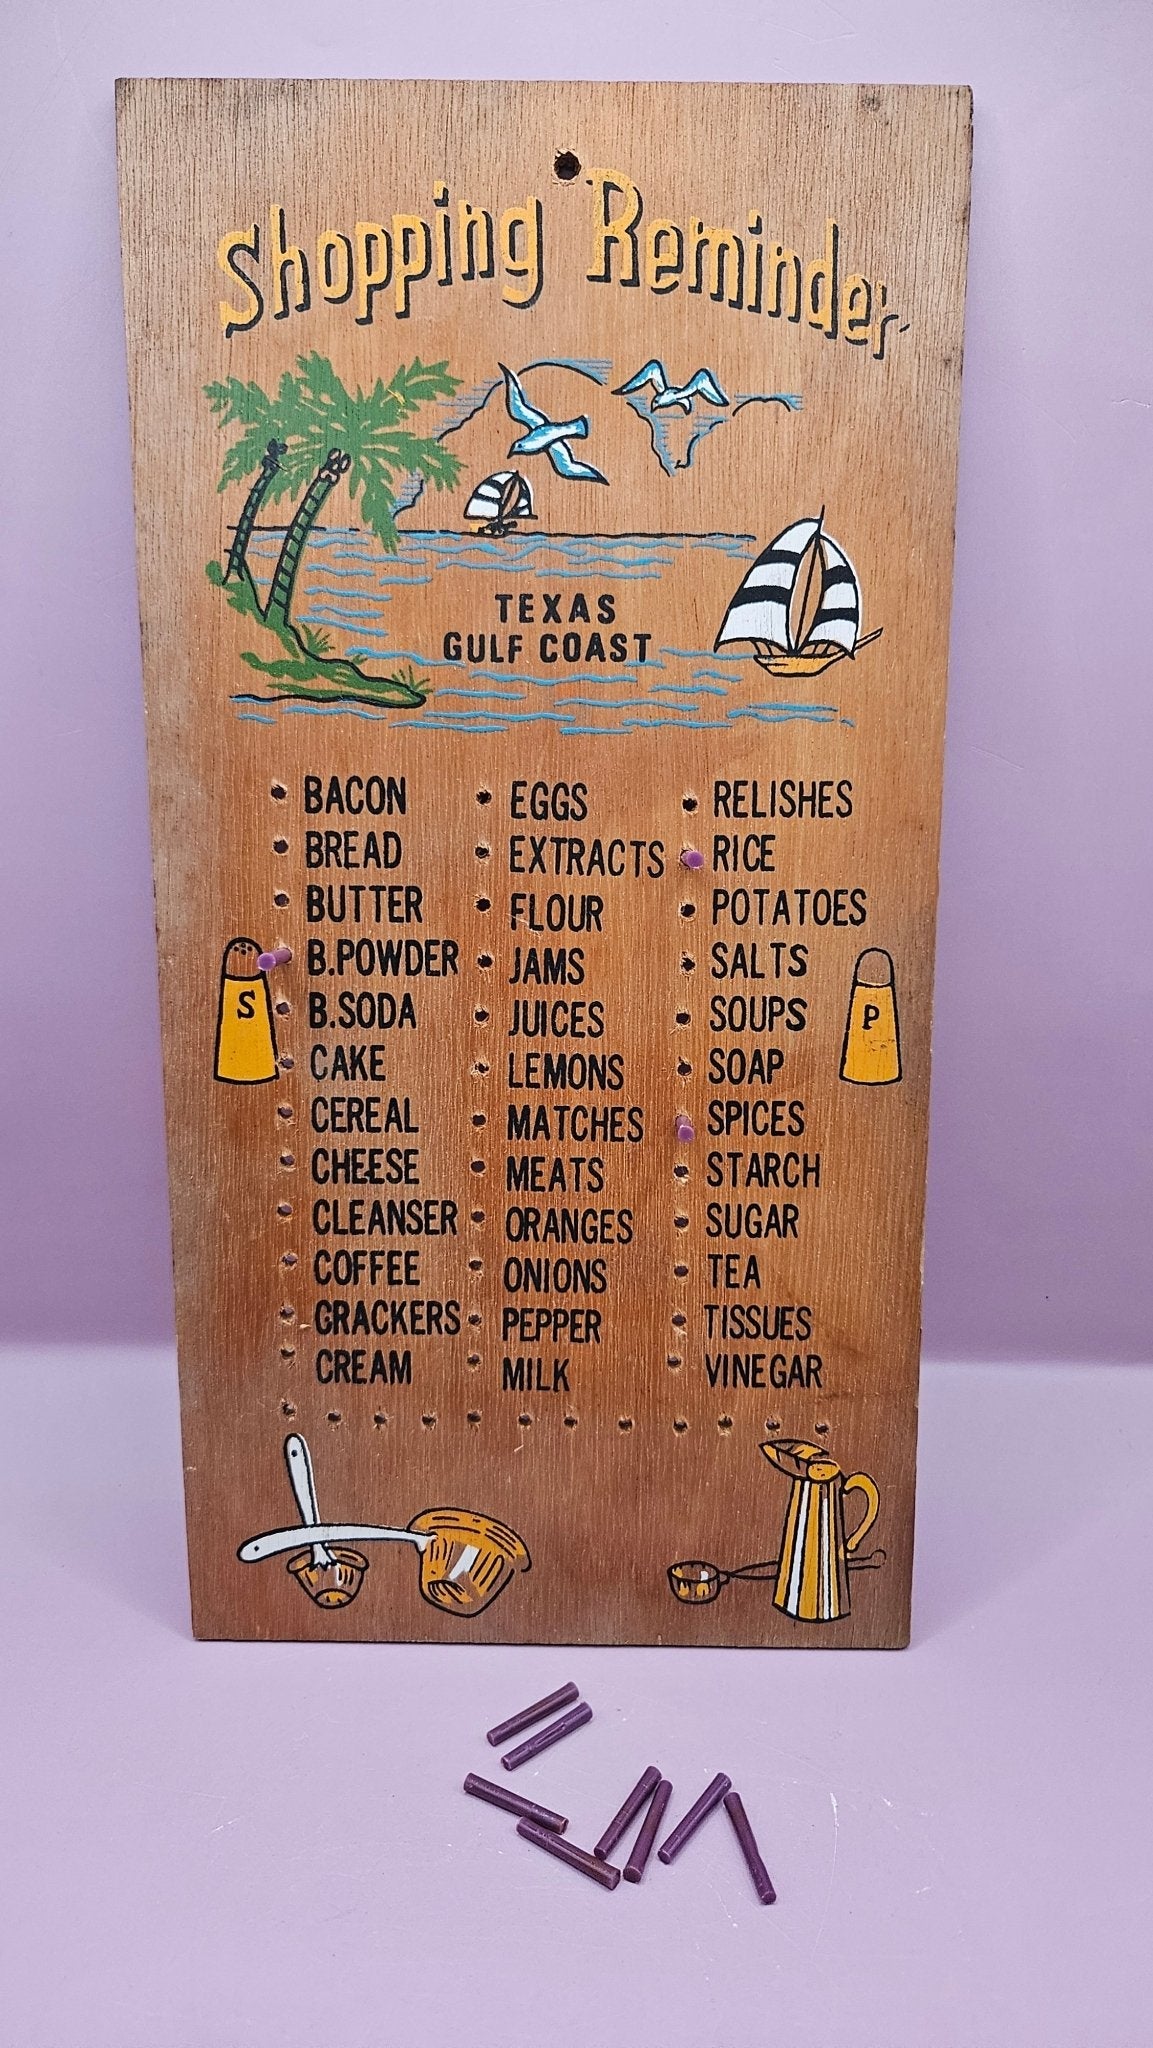 Shopping Reminder
TEXAS
GULF COAST
BACON
BREAD
BUTTER
B.POWDER
B.SODA
CAKE
CEREAL
CHEESE
CLEANSER
COFFEE
CRACKERS
CREAM
EGGS
EXTRACTS
FLOUR
JAMS
JUICES
LEMONS
MATCHES
MEATS
ORANGES
ONIONS
PEPPER
MILK
RELISHES
RICE
POTATOES
SALTS
SOUPS
SOAP
SPICES
STARCH
SUGAR
TEA
TISSUES
VINEGAR
S
P